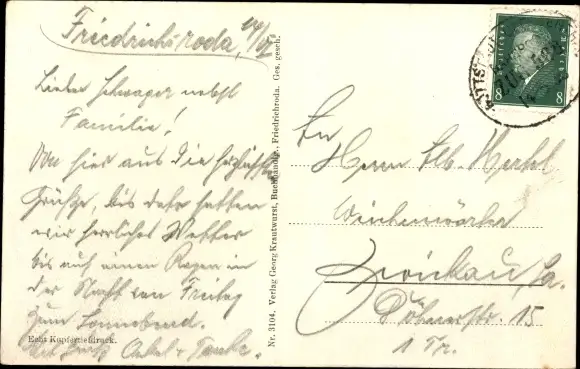 Friedrichroda,
Lieber Schwager nebst
Familie!
Von hier aus die herzlichsten
Grüße, bis dato hatten
wir herrliches Wetter
bis auf einen Regen in
der Nacht von Freitag
zum Sonnabend.
Onkel + Tante.
Echt Kupfertiefdruck.
Nr. 3104. Verlag Georg Krautwurst, Buchhandlg., Friedrichroda. Ges. gesch.
8 8
An
Herrn Hertel
Weichenwärter
Zwickau, Sa.
str. 15
1 Tr.